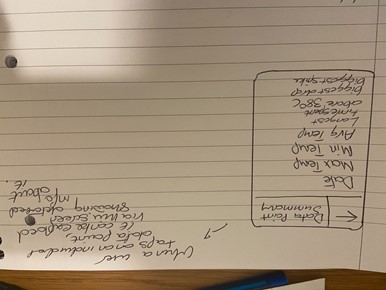 When a user
taps on an individual
data point,
it can be explored
via this screen
showing detailed
info about
it.
Data Point
Summary
Date
Max Temp
Min Temp
Avg Temp
Largest
timespent
above 38°C
Biggest drop
Biggest spike